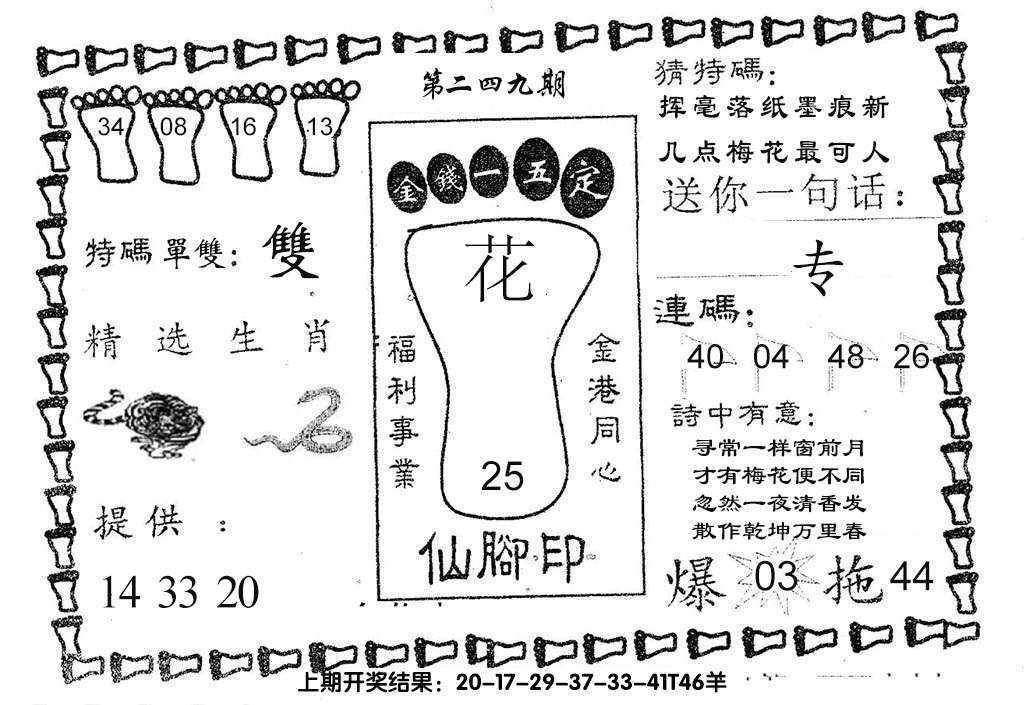 第二四九期
34 08 16 13
特碼單雙：雙
精选生肖
提供：
14 33 20
金錢一五定
花
福利事業
金港同心
25
仙腳印
猜特碼：
挥毫落纸墨痕新
几点梅花最可人
送你一句话：
专
連碼：
40 04 48 26
詩中有意：
寻常一样窗前月
才有梅花便不同
忽然一夜清香发
散作乾坤万里春
爆 03 拖 44
上期开奖结果：20-17-29-37-33-41T46羊